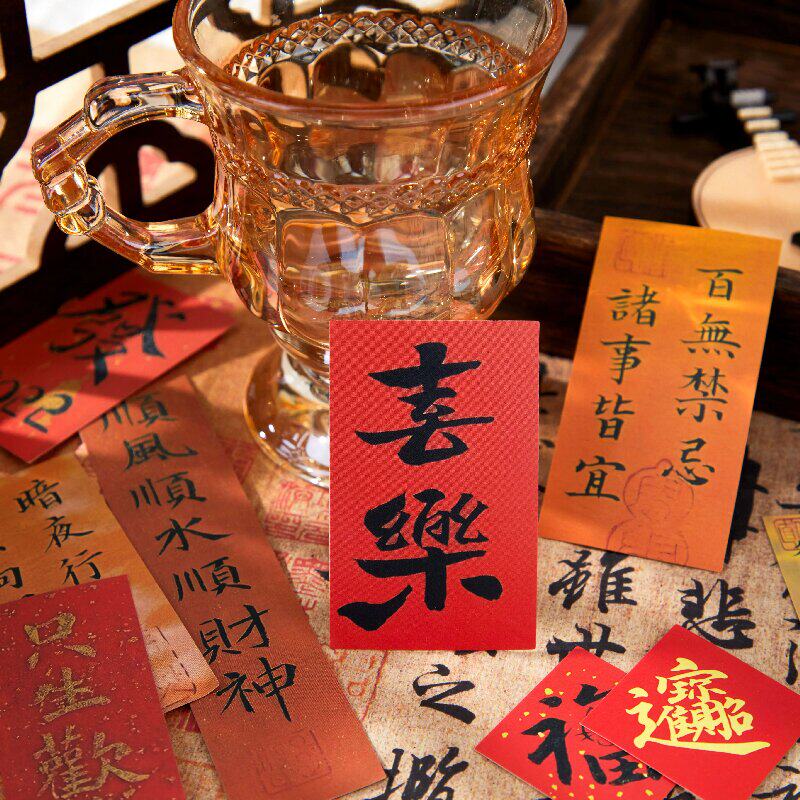 喜樂
百無禁忌
諸事皆宜
順風順水順財神
暗夜行
向
只生歡
2022
福
招財進寶
雖世
悲
之